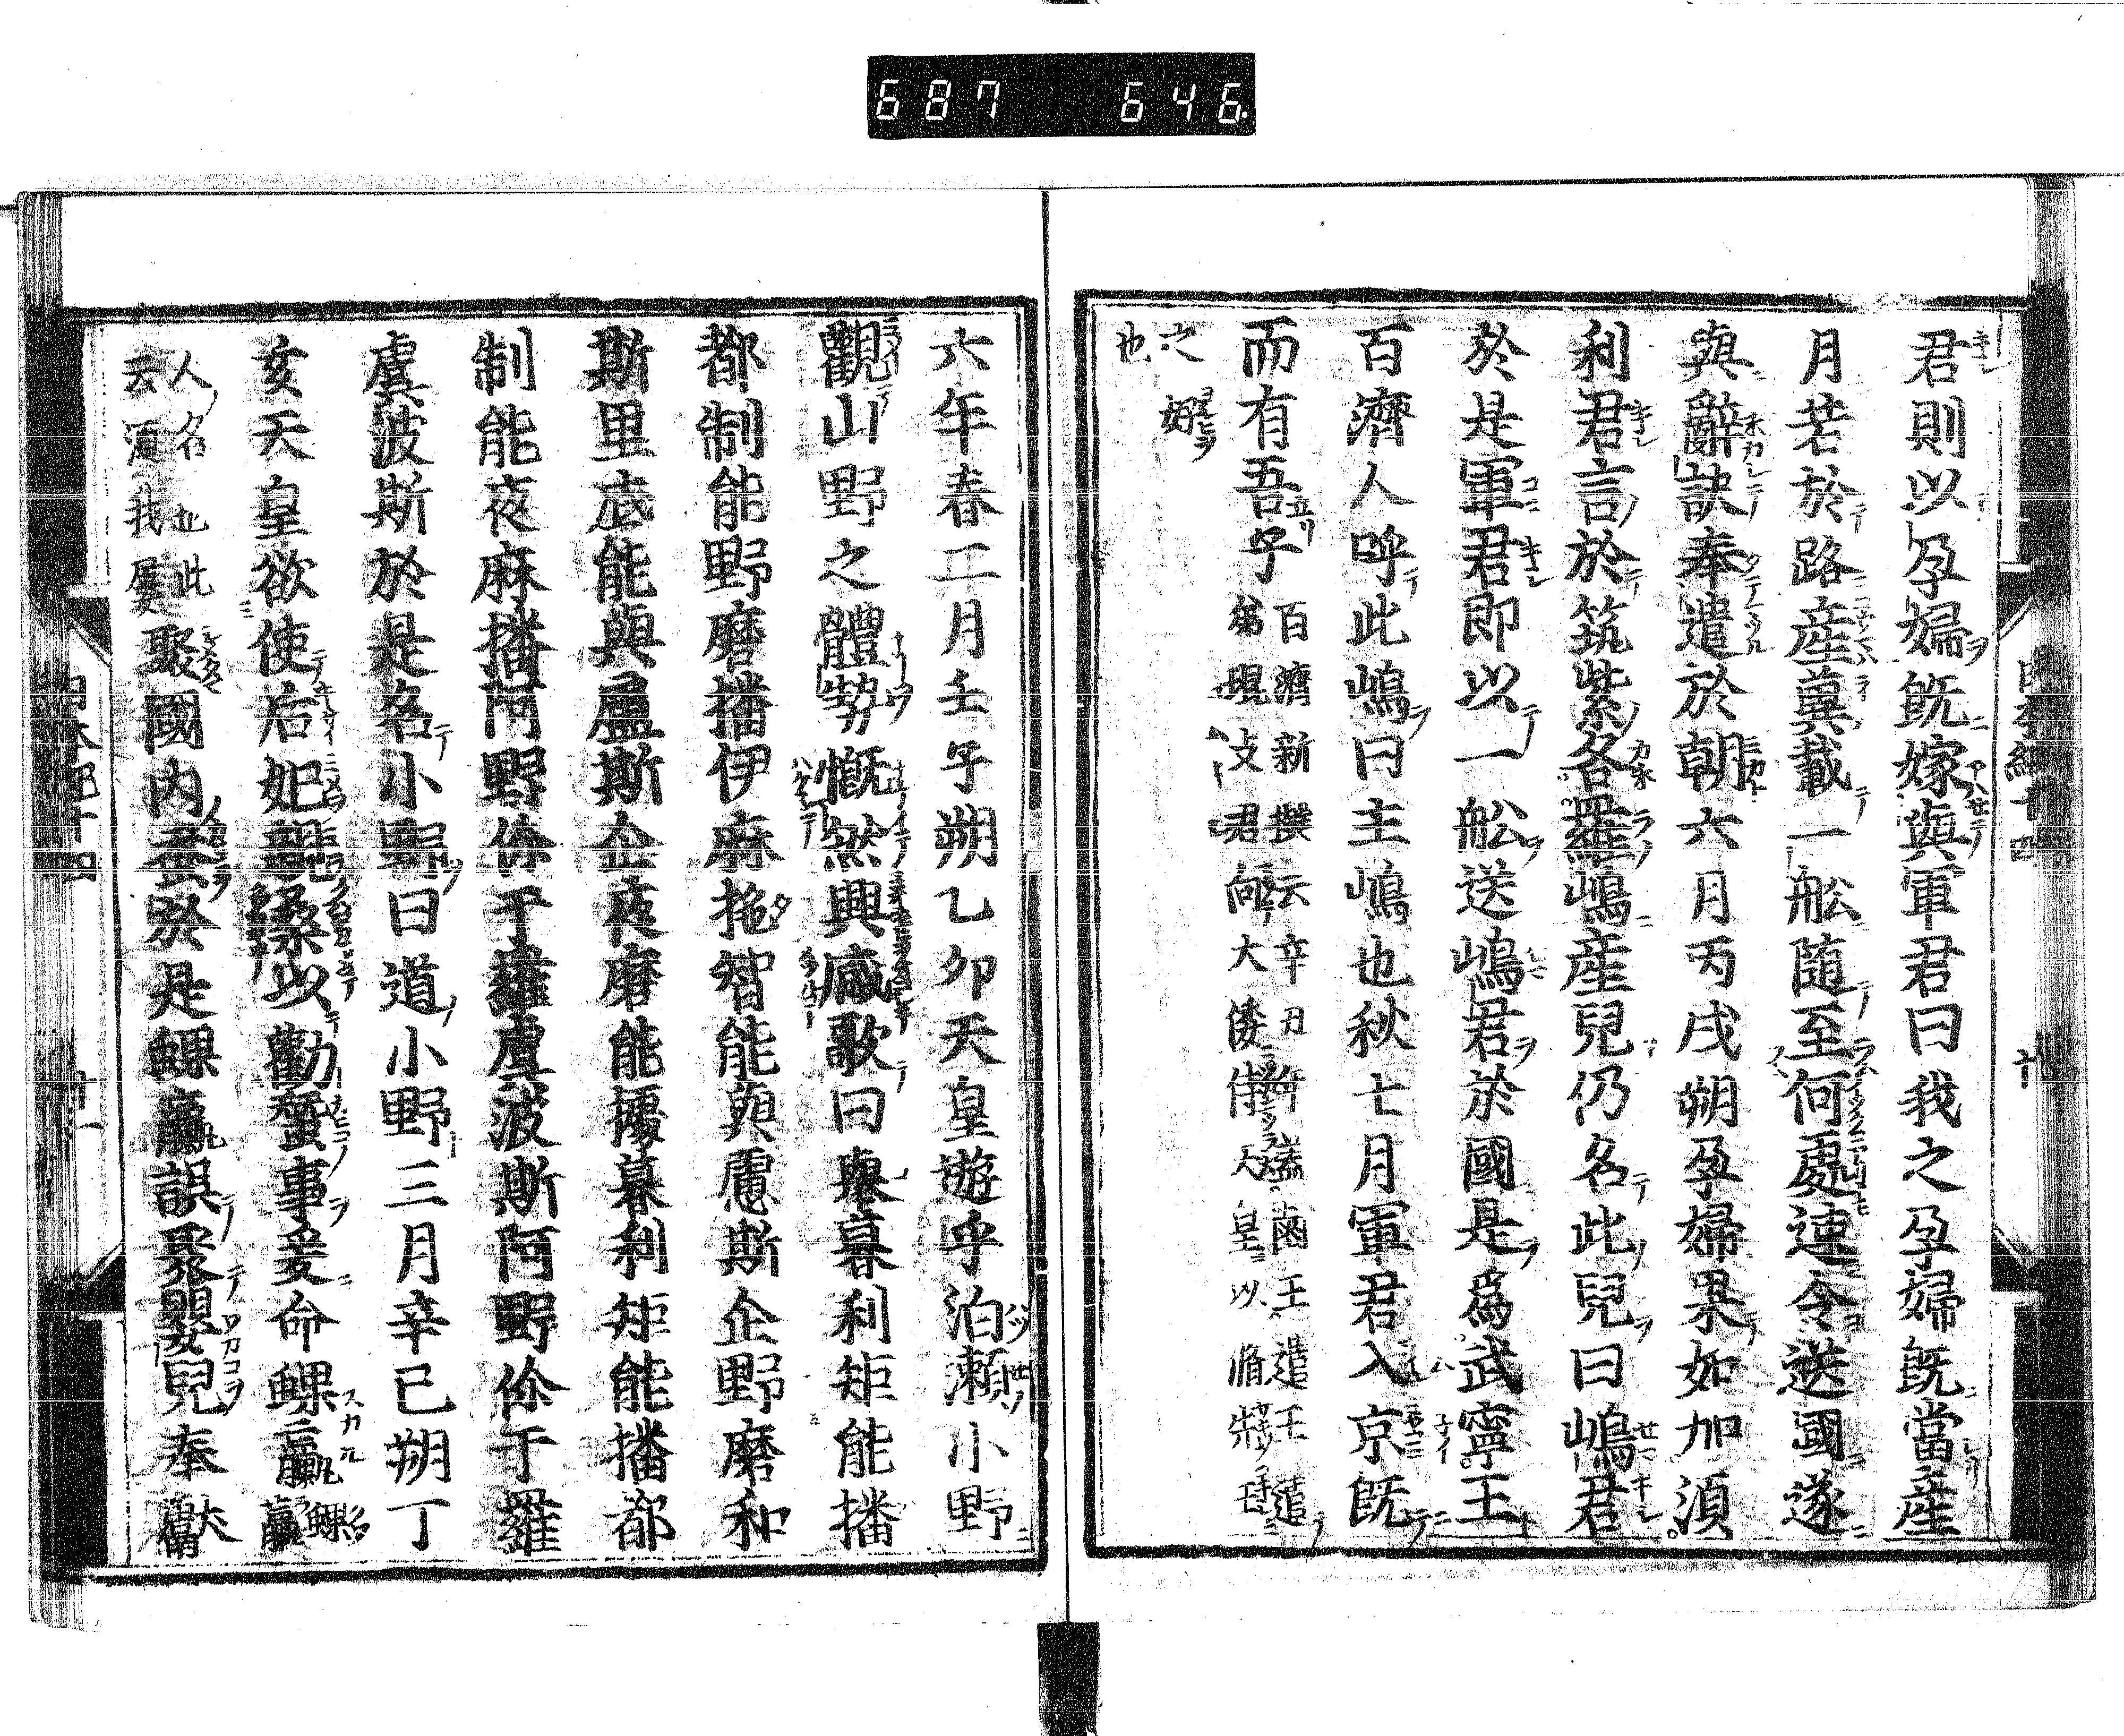 687 646
君則以孕婦既嫁與軍君曰我之孕婦既當產
月若於路產冀載一船隨至何處速令送國遂
與辭訣奉遣於朝六月丙戌朔孕婦果如加須
利君言於筑紫各羅嶋產兒仍名此兒曰嶋君
於是軍君即以一船送嶋君於國是為武寧王
百濟人呼此嶋曰主嶋也秋七月軍君入京既
而有五子
百濟新撰云辛丑年盖鹵王遣王遣
弟琨支君向大倭侍天皇以脩
之好
也
六年春二月壬子朔乙卯天皇遊乎泊瀬小野
觀山野之體勢慨然興感歌曰
暮利矩能播
都制能野磨播伊麻拖智能與慮斯企野磨和
斯里底能與盧斯企夜磨能據暮利矩能播都
制能夜麻播阿野儞于羅虞波斯阿野儞于羅
虞波斯於是名小野曰道小野三月辛巳朔丁
亥天皇欲使后妃親桑以勸蠶事爰命蜾蠃
蜾蠃
人名也此
云須我屢
聚國内蚕於是蜾蠃誤聚嬰兒奉獻
日本紀十四
十一